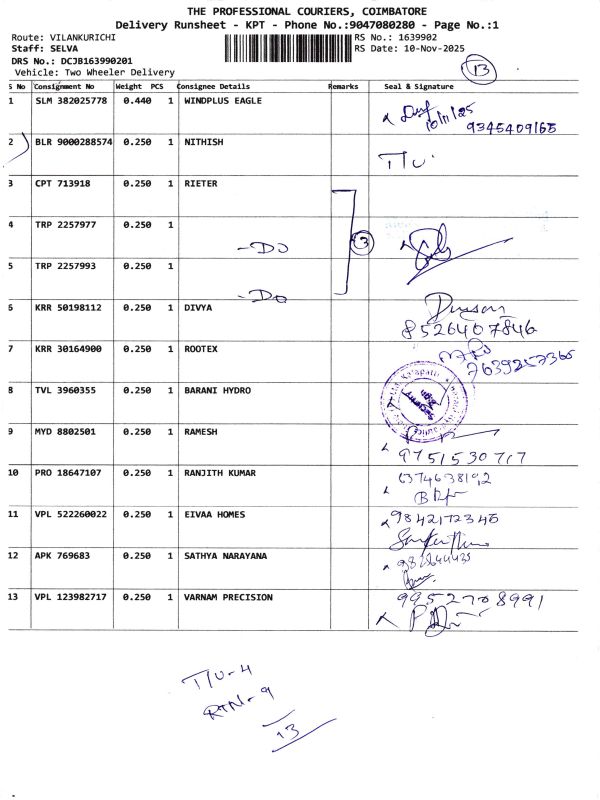 THE PROFESSIONAL COURIERS, COIMBATORE
Delivery Runsheet - KPT - Phone No.:9047080280 - Page No.:1
Route: VILANKURICHI
RS No.: 1639902
Staff: SELVA
RS Date: 10-Nov-2025
DRS No.: DCJB163990201
13
Vehicle: Two Wheeler Delivery
S No Consignment No Weight PCS Consignee Details Remarks Seal & Signature
1 SLM 382025778 0.440 1 WINDPLUS EAGLE
10/11/25
9345409165
2 BLR 9000288574 0.250 1 NITHISH
T/U
3 CPT 713918 0.250 1 RIETER
4 TRP 2257977 0.250 1
-DO
3
5 TRP 2257993 0.250 1
-Do
6 KRR 50198112 0.250 1 DIVYA
8526407846
7 KRR 30164900 0.250 1 ROOTEX
7639257365
8 TVL 3960355 0.250 1 BARANI HYDRO
9 MYD 8802501 0.250 1 RAMESH
9751530717
10 PRO 18647107 0.250 1 RANJITH KUMAR
11 VPL 522260022 0.250 1 EIVAA HOMES
9842172345
12 APK 769683 0.250 1 SATHYA NARAYANA
13 VPL 123982717 0.250 1 VARNAM PRECISION
9952708991
T/U-4
RTN-9
13